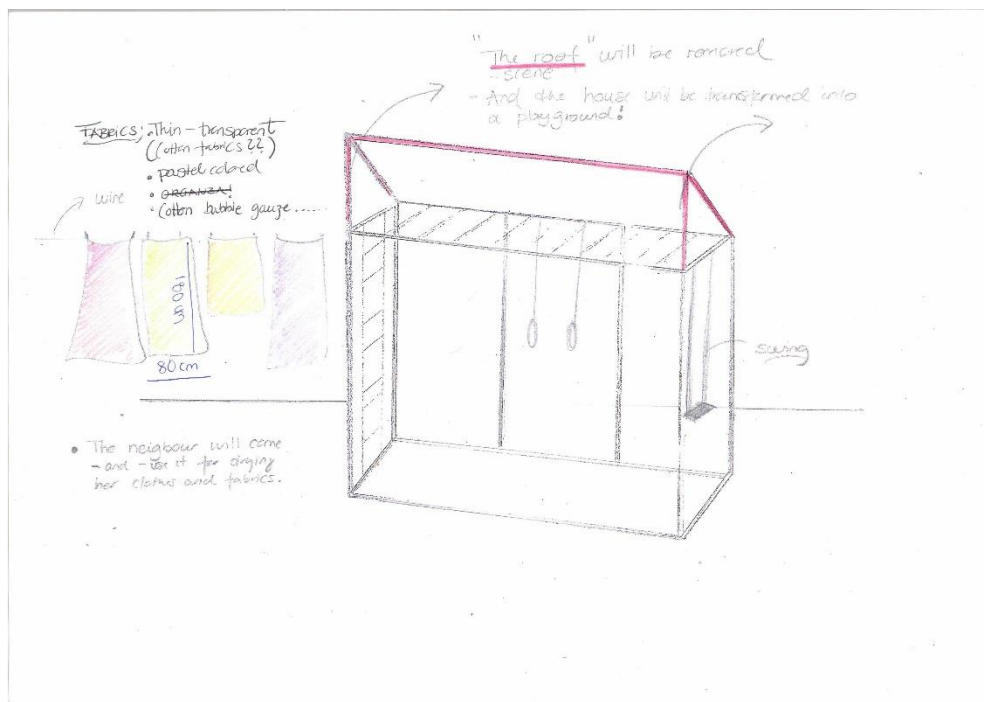 "The roof" will be removed
- scene
- And the house will be transformed into
a playground!
FABRICS; • Thin - transparent
(Cotton fabrics ??)
• pastel colored
• ORGANZA!
• Cotton bubble gauze......
wire
180 cm
80 cm
swing
• The neighbour will come
- and - use it for drying
her clothes and fabrics.